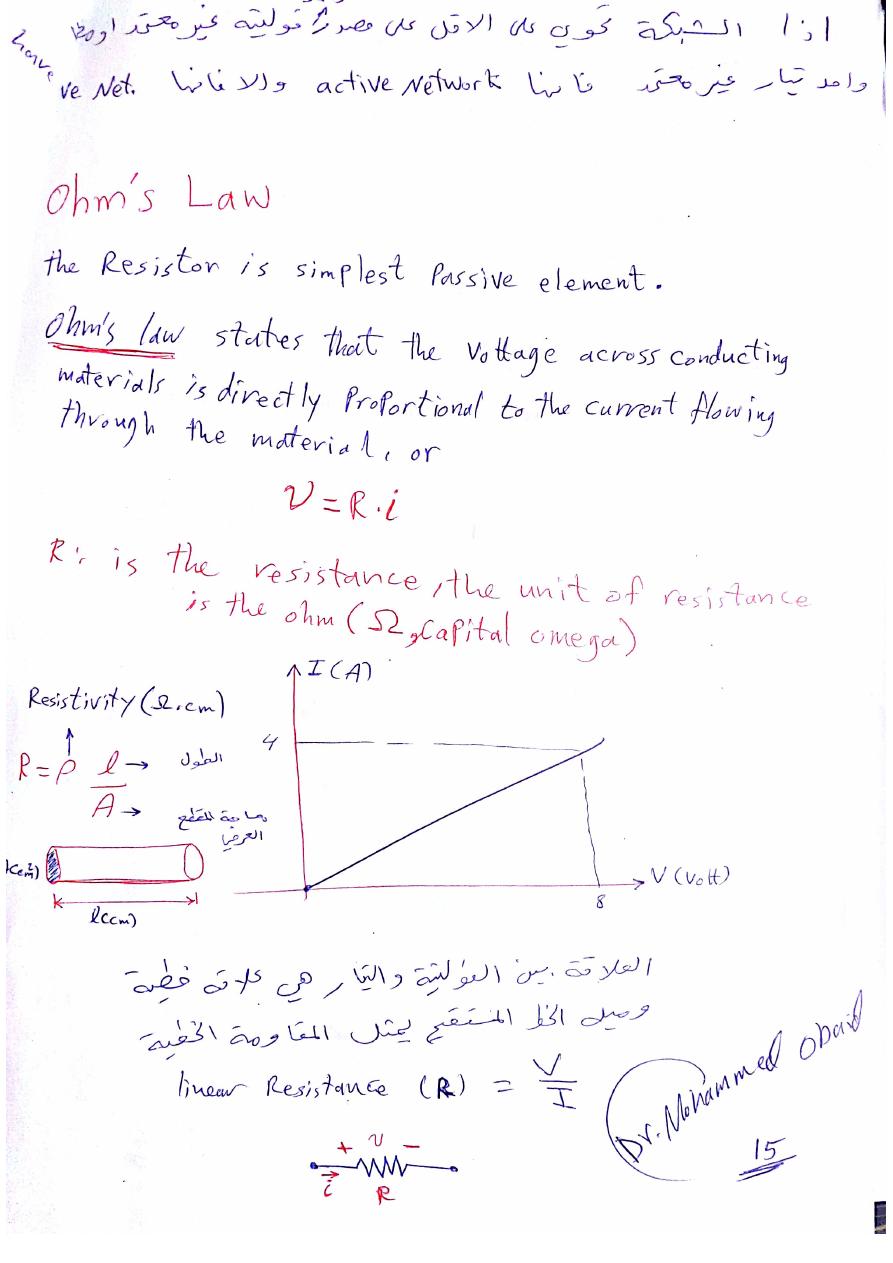 اذا الشبكة تحوي على الاقل على مصدر فولتية غير معتمد او
واحد تيار غير معتمد فانها active Network والا فانها ve Net.
Ohm's Law
the Resistor is simplest Passive element.
Ohm's law states that the voltage across conducting
materials is directly Proportional to the current flowing
through the material, or
v = R.i
R: is the resistance, the unit of resistance
is the ohm (Ω, Capital omega)
I (A)
Resistivity (Ω.cm)
4
R = ρ l/A
الطول
مساحة المقطع
العرضي
(cm²)
l(cm)
V (Volt)
8
العلاقة بين الفولتية والتيار هي علاقة خطية
وميل الخط المستقيم يمثل المقاومة الخطية
linear Resistance (R) = V/I
Dr. Mohammed Obaid
15
+ v -
i
R